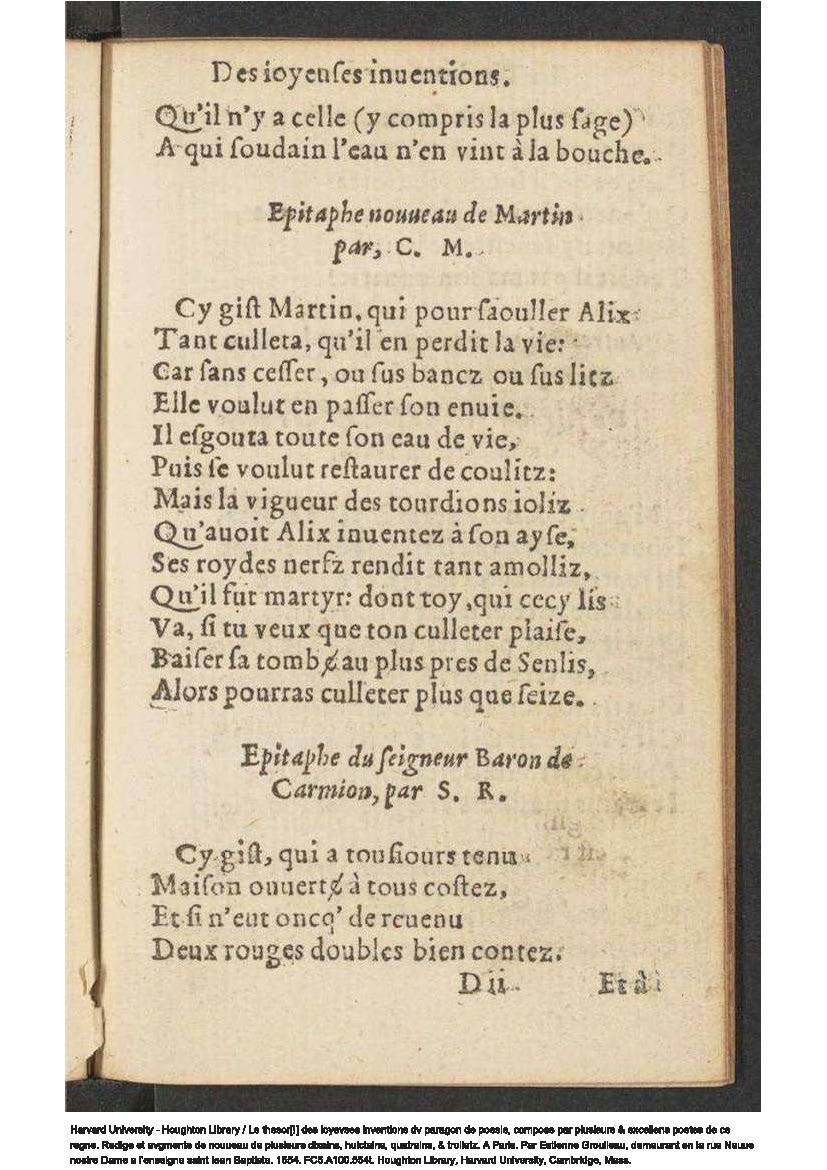 Des ioyeuſes inuentions.
Qu'il n'y a celle (y compris la plus ſage)
A qui ſoudain l'eau n'en vint à la bouche.
Epitaphe nouueau de Martin
par, C. M.
Cy giſt Martin, qui pour ſaouller Alix
Tant culleta, qu'il en perdit la vie:
Car ſans ceſſer, ou ſus bancz ou ſus litz
Elle voulut en paſſer ſon enuie.
Il eſgouta toute ſon eau de vie,
Puis ſe voulut reſtaurer de coulitz:
Mais la vigueur des tourdions ioliz
Qu'auoit Alix inuentez à ſon ayſe,
Ses roydes nerfz rendit tant amolliz,
Qu'il fut martyr: dont toy, qui cecy lis
Va, ſi tu veux que ton culleter plaiſe,
Baiſer ſa tombɇau plus pres de Senlis,
Alors pourras culleter plus que ſeize.
Epitaphe du ſeigneur Baron de
Carmion, par S. R.
Cy giſt, qui a touſiours tenu
Maiſon ouuertɇ à tous coſtez,
Et ſi n'eut oncq' de reuenu
Deux rouges doubles bien contez.
D ii. Et à
Harvard University - Houghton Library / Le thesor[i] des ioyevses inventions dv paragon de poesie, compose par plusieurs & excellens poetes de ce
regne. Redige et avgmente de nouueau de plusieurs dixains, huictains, quatrains, & trolletz. A Paris. Par Estienne Groulleau, demeurant en la rue Neuue
nostre Dame a l'enseigne saint Iean Baptiste. 1554. FC5.A100.554t. Houghton Library, Harvard University, Cambridge, Mass.